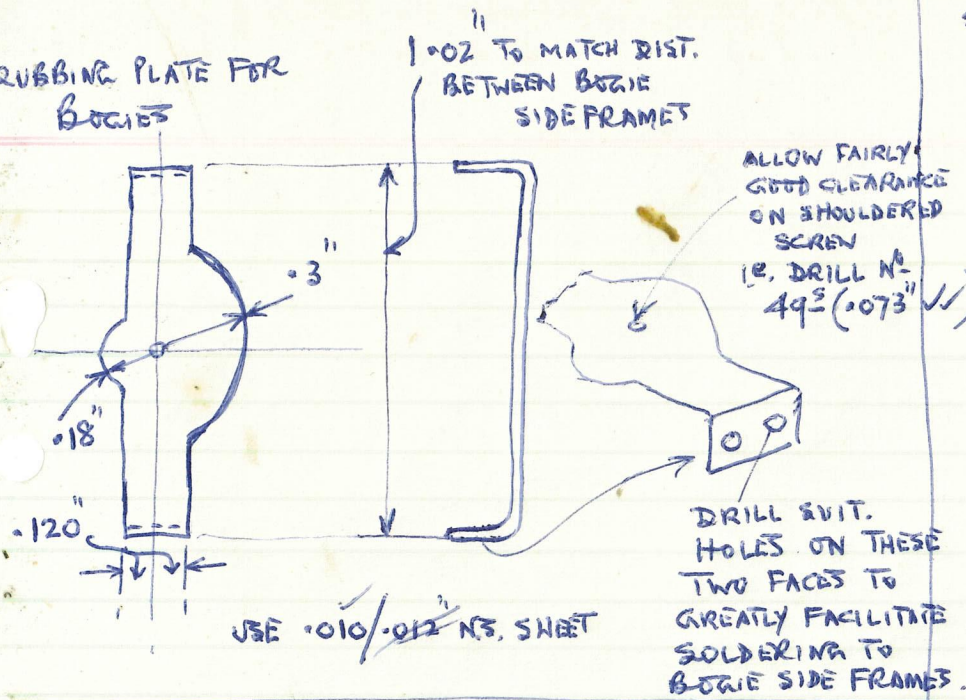 RUBBING PLATE FOR
BOGIES
1.02" TO MATCH DIST.
BETWEEN BOGIE
SIDE FRAMES
ALLOW FAIRLY
GOOD CLEARANCE
ON SHOULDERED
SCREW
i.e. DRILL No
49s (.073"
.3"
.18"
.120"
USE .010/.012" N.S. SHEET
DRILL SUIT.
HOLES ON THESE
TWO FACES TO
GREATLY FACILITATE
SOLDERING TO
BOGIE SIDE FRAMES.